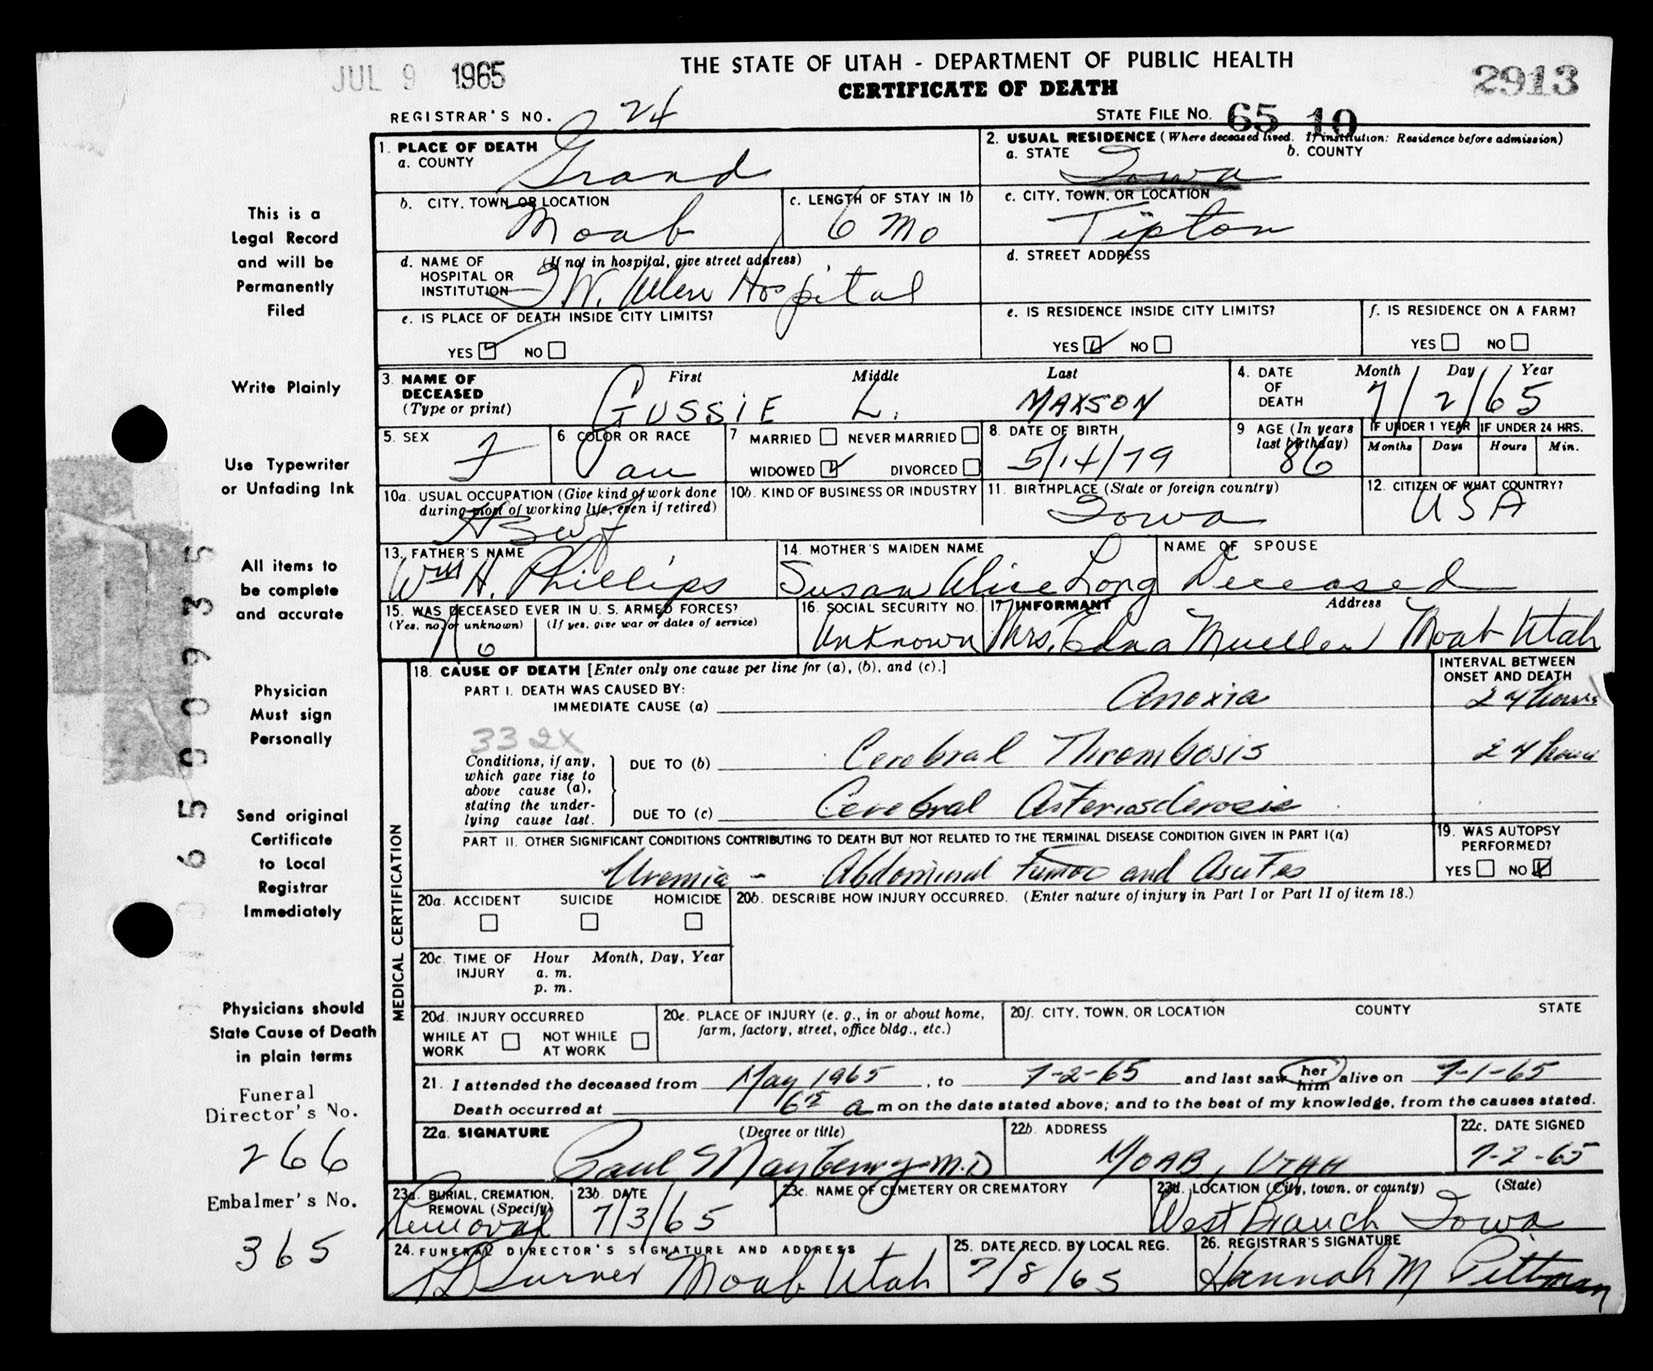 JUL 9 1965
THE STATE OF UTAH - DEPARTMENT OF PUBLIC HEALTH
2913
CERTIFICATE OF DEATH
REGISTRAR'S NO. 24
STATE FILE NO. 65 19
1. PLACE OF DEATH
a. COUNTY Grand
2. USUAL RESIDENCE (Where deceased lived. If institution: Residence before admission)
a. STATE Iowa b. COUNTY
b. CITY, TOWN, OR LOCATION Moab
c. LENGTH OF STAY IN 1b 6 Mo
c. CITY, TOWN, OR LOCATION Tipton
d. NAME OF HOSPITAL OR INSTITUTION (If not in hospital, give street address)
W. Allen Hospital
d. STREET ADDRESS
e. IS PLACE OF DEATH INSIDE CITY LIMITS?
YES NO
e. IS RESIDENCE INSIDE CITY LIMITS?
YES NO
f. IS RESIDENCE ON A FARM?
YES NO
3. NAME OF DECEASED (Type or print)
First Middle Last
GUSSIE L. MAXSON
4. DATE OF DEATH
Month Day Year
7/2/65
5. SEX F
6 COLOR OR RACE Cau
7 MARRIED NEVER MARRIED
WIDOWED DIVORCED
8. DATE OF BIRTH 5/14/79
9 AGE (In years last birthday) 86
IF UNDER 1 YEAR IF UNDER 24 HRS.
Months Days Hours Min.
10a. USUAL OCCUPATION (Give kind of work done during most of working life, even if retired)
Hswf
10b. KIND OF BUSINESS OR INDUSTRY
11. BIRTHPLACE (State or foreign country)
Iowa
12. CITIZEN OF WHAT COUNTRY?
USA
13. FATHER'S NAME
Wm H. Phillips
14. MOTHER'S MAIDEN NAME
Susan Alice Long
NAME OF SPOUSE
Deceased
15. WAS DECEASED EVER IN U. S. ARMED FORCES?
(Yes, no, or unknown) (If yes, give war or dates of service)
No
16. SOCIAL SECURITY NO.
Unknown
17 INFORMANT Address
Mrs. Edna Mueller Moab Utah
MEDICAL CERTIFICATION
18. CAUSE OF DEATH [Enter only one cause per line for (a), (b), and (c).]
INTERVAL BETWEEN ONSET AND DEATH
PART I. DEATH WAS CAUSED BY:
IMMEDIATE CAUSE (a) Anoxia 24 hours
332X
Conditions, if any, which gave rise to above cause (a), stating the underlying cause last.
DUE TO (b) Cerebral Thrombosis 24 hours
DUE TO (c) Cerebral Arteriosclerosis
PART II. OTHER SIGNIFICANT CONDITIONS CONTRIBUTING TO DEATH BUT NOT RELATED TO THE TERMINAL DISEASE CONDITION GIVEN IN PART I(a)
Uremia - Abdominal Tumor and Ascites
19. WAS AUTOPSY PERFORMED?
YES NO
20a. ACCIDENT SUICIDE HOMICIDE
20b. DESCRIBE HOW INJURY OCCURRED. (Enter nature of injury in Part I or Part II of item 18.)
20c. TIME OF INJURY Hour Month, Day, Year
a. m.
p. m.
20d. INJURY OCCURRED
WHILE AT WORK NOT WHILE AT WORK
20e. PLACE OF INJURY (e. g., in or about home, farm, factory, street, office bldg., etc.)
20f. CITY, TOWN, OR LOCATION COUNTY STATE
21. I attended the deceased from May 1965, to 7-2-65 and last saw her him alive on 7-1-65
Death occurred at 6 15 a m on the date stated above; and to the best of my knowledge, from the causes stated.
22a. SIGNATURE (Degree or title)
Paul Mayberry M.D
22b. ADDRESS
MOAB, UTAH
22c. DATE SIGNED
7-2-65
23a. BURIAL, CREMATION, REMOVAL (Specify)
Removal
23b. DATE
7/3/65
23c. NAME OF CEMETERY OR CREMATORY
23d. LOCATION (City, town, or county) (State)
West Branch Iowa
24. FUNERAL DIRECTOR'S SIGNATURE AND ADDRESS
Turner Moab Utah
25. DATE RECD. BY LOCAL REG.
7/8/65
26. REGISTRAR'S SIGNATURE
Hannah M Pittman
This is a
Legal Record
and will be
Permanently
Filed
Write Plainly
Use Typewriter
or Unfading Ink
All items to
be complete
and accurate
Physician
Must sign
Personally
Send original
Certificate
to Local
Registrar
Immediately
Physicians should
State Cause of Death
in plain terms
Funeral
Director's No.
266
Embalmer's No.
365